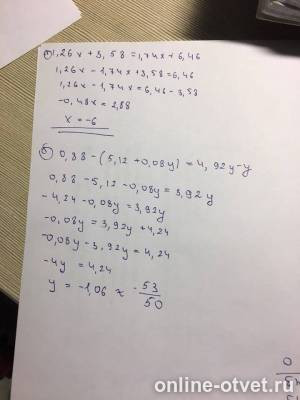 а) 1,26x + 3,58 = 1,74x + 6,46
1,26x - 1,74x + 3,58 = 6,46
1,26x - 1,74x = 6,46 - 3,58
-0,48x = 2,88
x = -6
б) 0,88 - (5,12 + 0,08y) = 4,92y - y
0,88 - 5,12 - 0,08y = 3,92y
-4,24 - 0,08y = 3,92y
-0,08y = 3,92y + 4,24
-0,08y - 3,92y = 4,24
-4y = 4,24
y = -1,06 x -53/50
online-otvet.ru